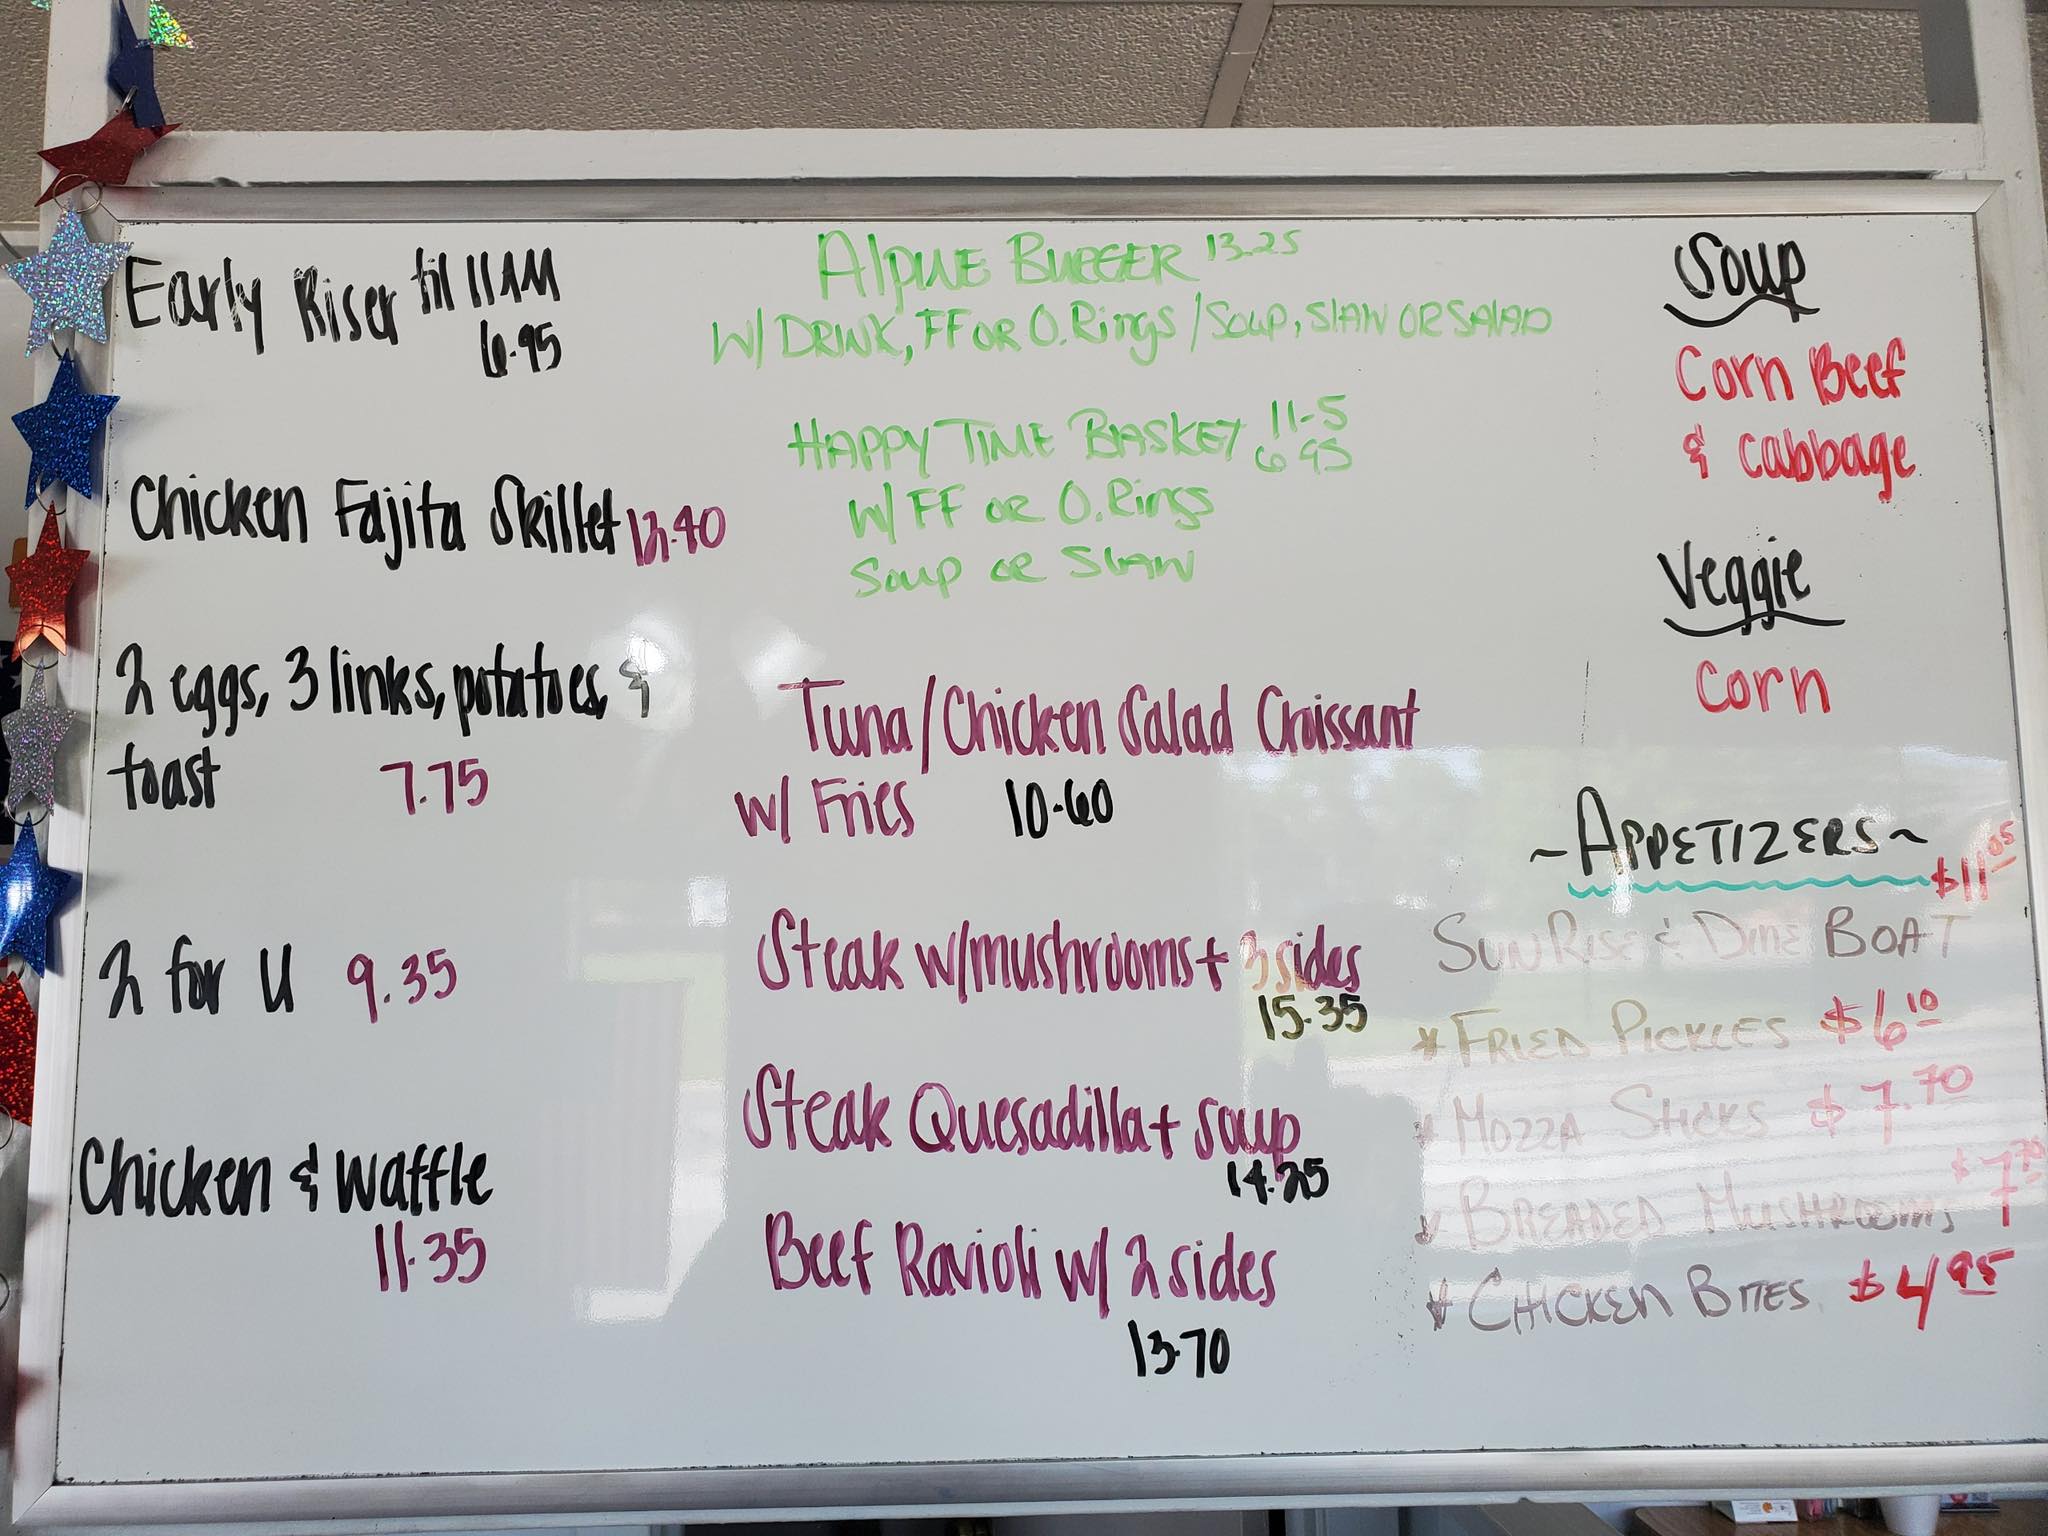 Early Riser til 11AM
6.95
Chicken Fajita Skillet 13.40
2 eggs, 3 links, potatoes, &
toast 7.75
2 for U 9.35
Chicken & Waffle
11.35
Alpine Burger 13.25
W/ DRINK, FF OR O.Rings / Soup, SLAW OR SALAD
HAPPY TIME BASKET 11-5
6.95
W/ FF OR O.Rings
Soup OR SLAW
Tuna/Chicken Salad Croissant
w/ Fries 10.60
Steak w/mushrooms + 3 sides
15.35
Steak Quesadilla + soup
14.25
Beef Ravioli w/ 2 sides
13.70
Soup
Corn Beef
& Cabbage
Veggie
Corn
~APPETIZERS~
$11.05
SUNRISE & DINE BOAT
* FRIED PICKLES $6.10
* MOZZA STICKS $7.70
* BREADED MUSHROOMS $7.70
* CHICKEN BITES $4.95